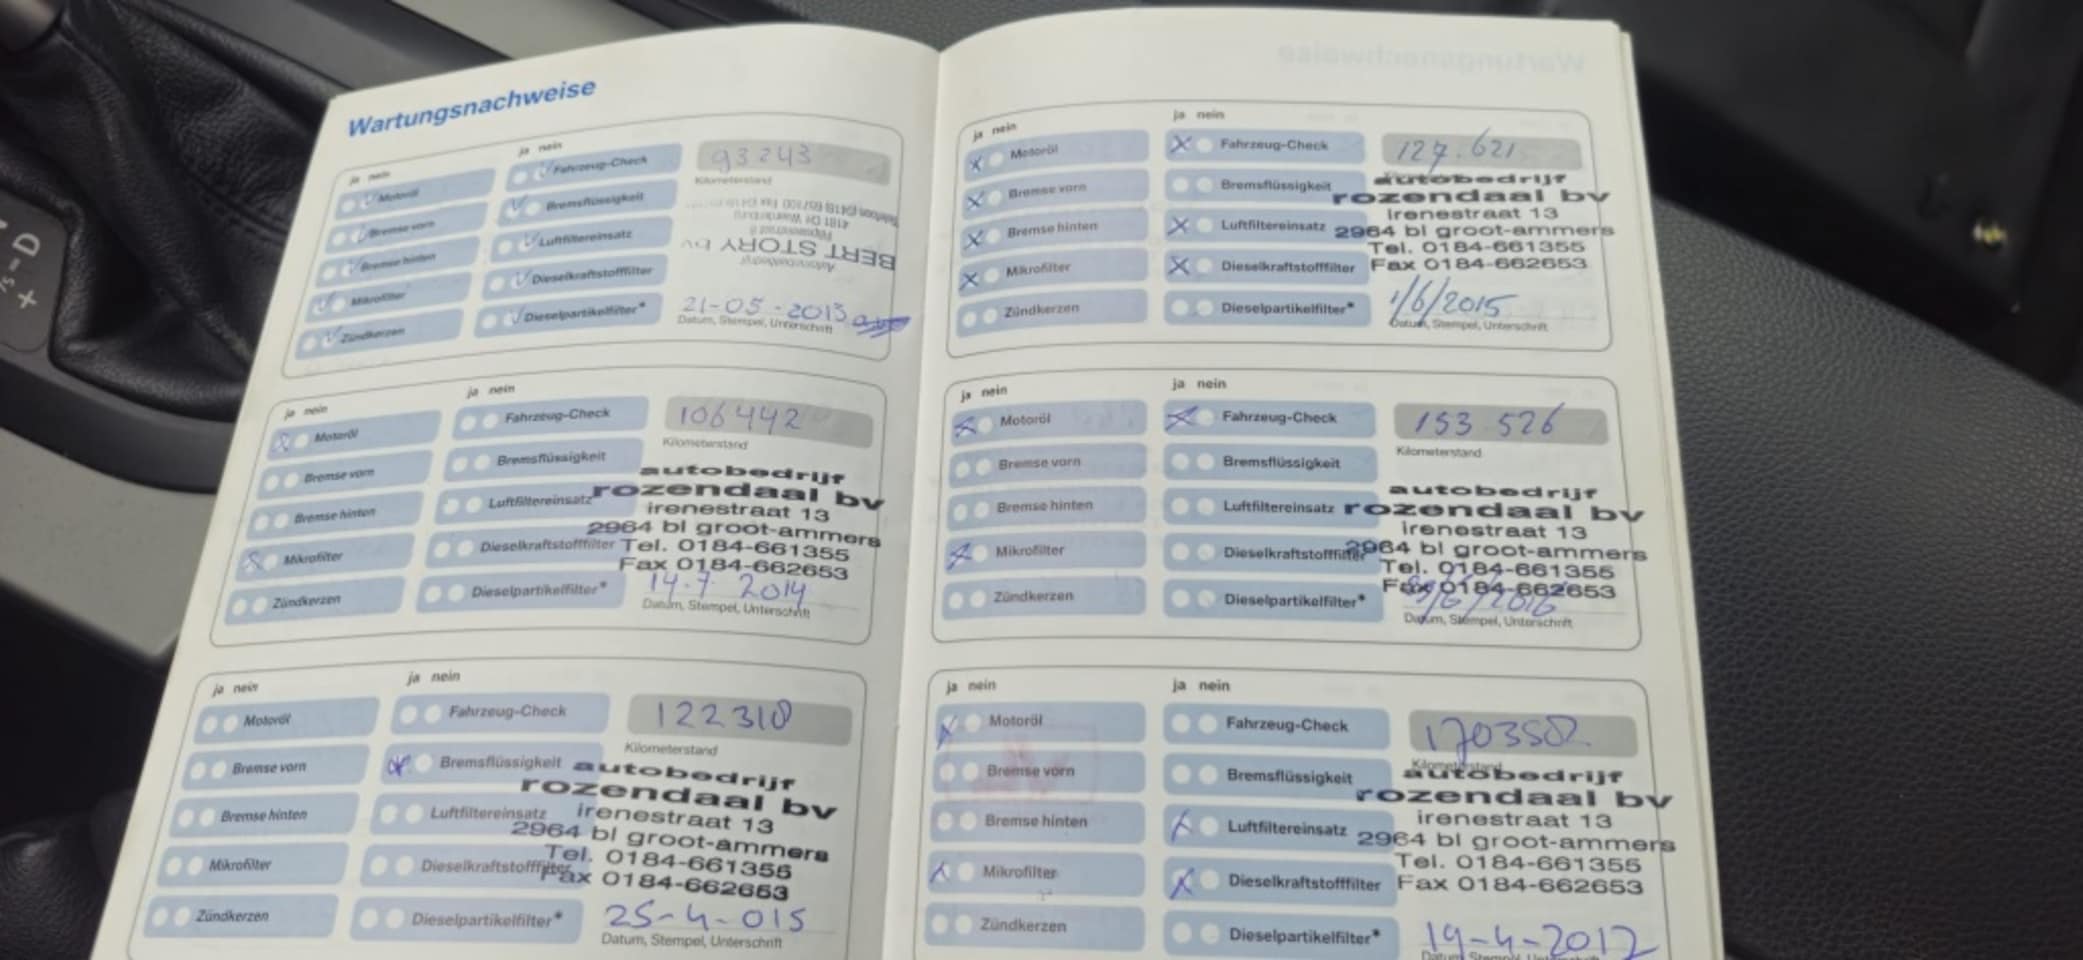 Wartungsnachweise
ja nein
Motoröl
Bremse vorn
Bremse hinten
Mikrofilter
Zündkerzen
ja nein
Fahrzeug-Check
Bremsflüssigkeit
Luftfiltereinsatz
Dieselkraftstofffilter
Dieselpartikelfilter*
93243
Kilometerstand
BERT STORY bv
21-05-2013
Datum, Stempel, Unterschrift
ja nein
Motoröl
Bremse vorn
Bremse hinten
Mikrofilter
Zündkerzen
ja nein
Fahrzeug-Check
Bremsflüssigkeit
Luftfiltereinsatz
Dieselkraftstofffilter
Dieselpartikelfilter*
106442
Kilometerstand
autobedrijf
rozendaal bv
irenestraat 13
2964 bl groot-ammers
Tel. 0184-661355
Fax 0184-662653
14-7 2014
Datum, Stempel, Unterschrift
ja nein
Motoröl
Bremse vorn
Bremse hinten
Mikrofilter
Zündkerzen
ja nein
Fahrzeug-Check
Bremsflüssigkeit
Luftfiltereinsatz
Dieselkraftstofffilter
Dieselpartikelfilter*
122310
Kilometerstand
autobedrijf
rozendaal bv
irenestraat 13
2964 bl groot-ammers
Tel. 0184-661355
Fax 0184-662653
25-4-015
Datum, Stempel, Unterschrift
ja nein
Motoröl
Bremse vorn
Bremse hinten
Mikrofilter
Zündkerzen
ja nein
Fahrzeug-Check
Bremsflüssigkeit
Luftfiltereinsatz
Dieselkraftstofffilter
Dieselpartikelfilter*
127.621
autobedrijf
rozendaal bv
irenestraat 13
2964 bl groot-ammers
Tel. 0184-661355
Fax 0184-662653
1/6/2015
Datum, Stempel, Unterschrift
ja nein
Motoröl
Bremse vorn
Bremse hinten
Mikrofilter
Zündkerzen
ja nein
Fahrzeug-Check
Bremsflüssigkeit
Luftfiltereinsatz
Dieselkraftstofffilter
Dieselpartikelfilter*
153 526
Kilometerstand
autobedrijf
rozendaal bv
irenestraat 13
2964 bl groot-ammers
Tel. 0184-661355
Fax 0184-662653
Datum, Stempel, Unterschrift
ja nein
Motoröl
Bremse vorn
Bremse hinten
Mikrofilter
Zündkerzen
ja nein
Fahrzeug-Check
Bremsflüssigkeit
Luftfiltereinsatz
Dieselkraftstofffilter
Dieselpartikelfilter*
Kilometerstand
autobedrijf
rozendaal bv
irenestraat 13
2964 bl groot-ammers
Tel. 0184-661355
Fax 0184-662653
19-4-2017
Datum, Stempel, Unterschrift
D
+